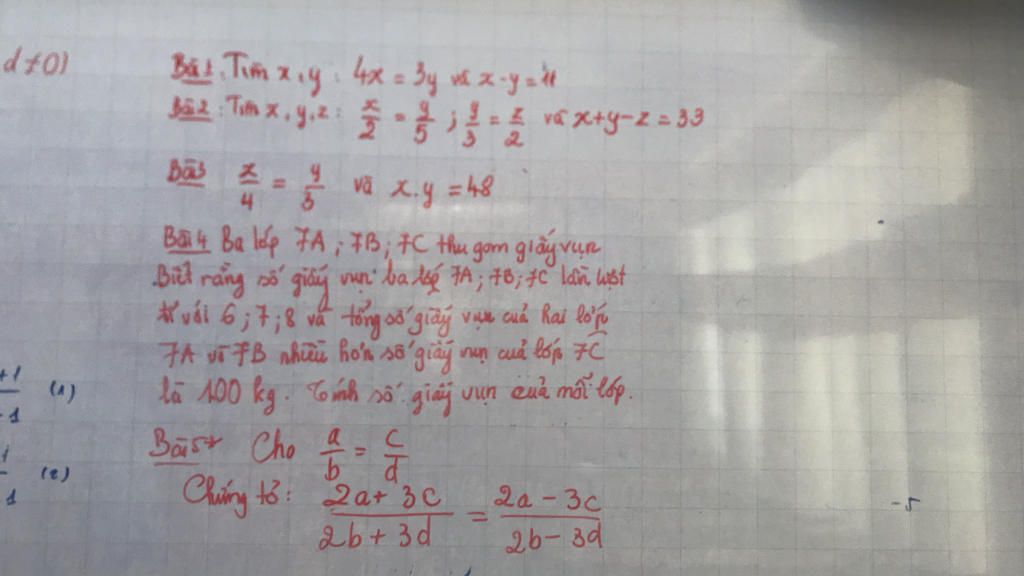 d ≠ 0)
Bài 1: Tìm x, y : 4x = 3y và x - y = 11
Bài 2 : Tìm x, y, z : x/2 = y/5 ; y/3 = z/2 và x + y - z = 33
Bài 3 x/4 = y/3 và x . y = 48
Bài 4 Ba lớp 7A ; 7B ; 7C thu gom giấy vụn
Biết rằng số giấy vụn ba lớp 7A ; 7B ; 7C lần lượt
với 6 ; 7 ; 8 và tổng số giấy vụn của hai lớp
7A và 7B nhiều hơn số giấy vụn của lớp 7C
là 100 kg. Tính số giấy vụn của mỗi lớp.
+1
1 (1)
Bài 5* Cho a/b = c/d
1 (2)
Chứng tỏ : (2a + 3c)/(2b + 3d) = (2a - 3c)/(2b - 3d)
-5